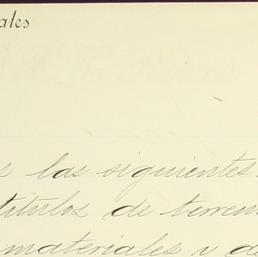 ales
las siguientes
titulos de terren
materiales y d